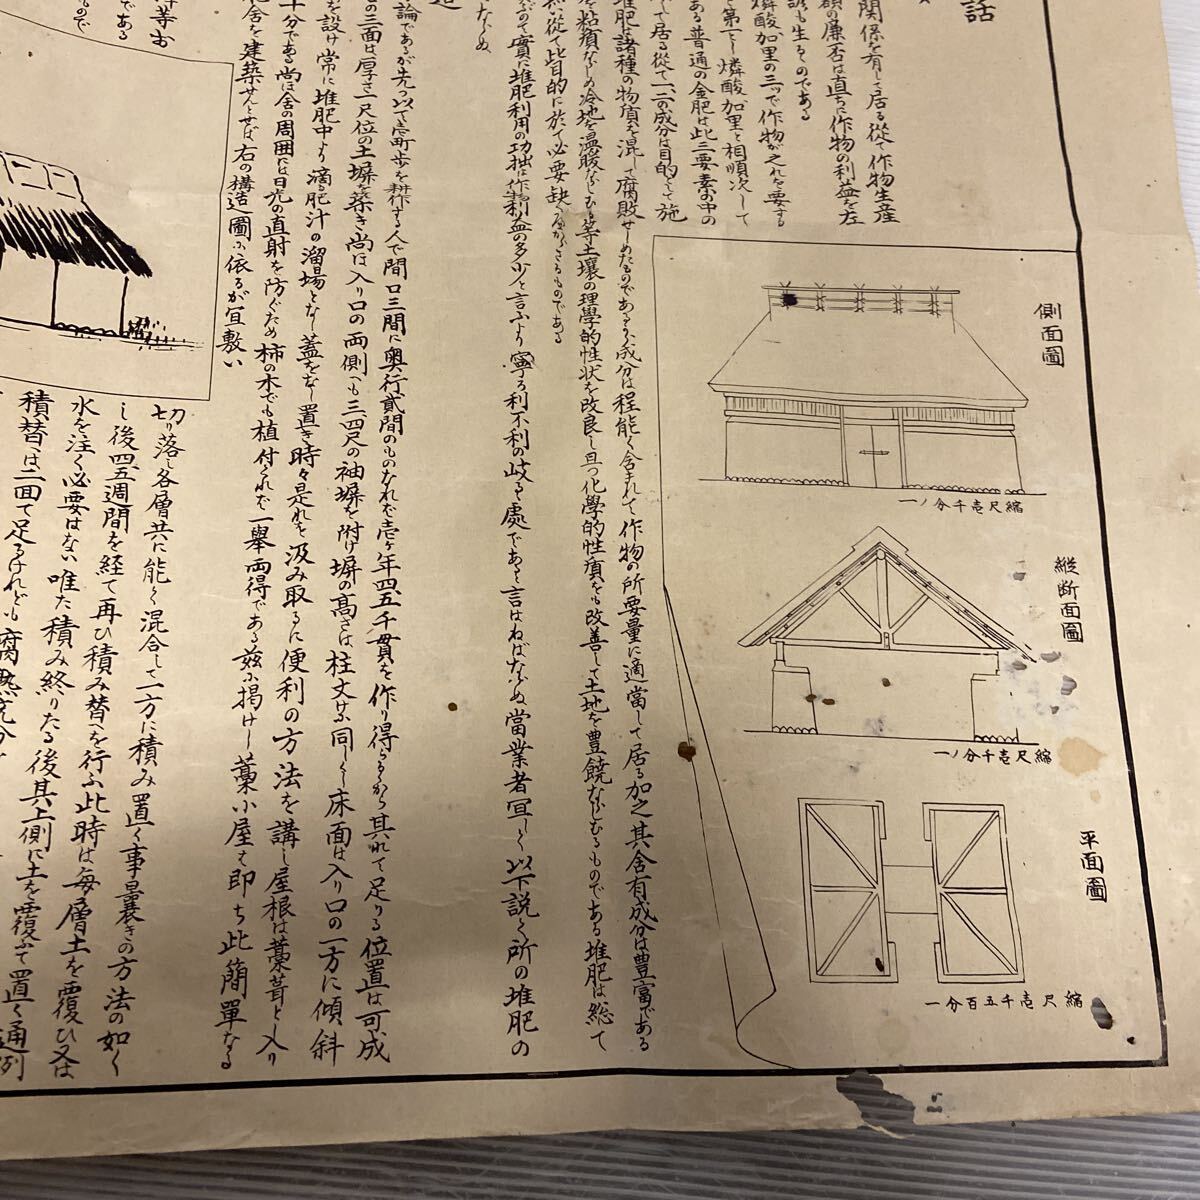 話
関係を有して居る従て作物生産
額の廉否は直ちに作物の利益を左
も生るのである
燐酸加里の三ツで作物が之れを要する
第一とし燐酸加里と相順次して
ある普通の金肥は此三要素の中の
して居る従て一、二の成分は目的として施
堆肥は諸種の物質を混して腐敗せしめたものであるから成分は程能く含まれて作物の所要量に適當して居る加之其含有成分は豊富である
を粘質ならしめ冷地を温暖ならしむる等土壌の理學的性状を改良し且つ化學的性質をも改善して土地を豊饒ならしむるものである堆肥は総て
従て此目的に於て必要缺くべからざるものである
ので實に堆肥利用の功拙は作利益の多少と言ふより寧ろ利不利の岐る處であると言はねばならぬ當業者宜しく以下説く所の堆肥の
ならぬ
造
論であるが先つ以て壱町歩を耕作する人で間口三間に奥行貳間のものなれば壱ヶ年四五千貫を作り得らるから其れで足りる位置は可成
の三面は厚さ一尺位の土塀を築き尚ほ入り口の両側へも三四尺の袖塀を附け塀の高さは柱丈けに同しく床面は入り口の一方に傾斜
を設け常に堆肥中より滴る肥汁の溜場となし蓋をなし置き時々是れを汲み取るに便利の方法を講し屋根は藁葺とし入り
十分である尚ほ舎の周囲には日光の直射を防ぐため柿の木でも植付くれば一挙両得である茲に掲けし藁小屋は即ち此簡單なる
舎を建築せんとせば右の構造圖に依るが宜敷い
等お
である
切り落し各層共に能く混合して一方に積み置く事曩きの方法の如く
し後四五週間を経て再ひ積み替を行ふ此時は毎層土を覆ひ又は
水を注く必要はない唯た積み終りたる後其上側に土を覆ふて置く通例
積替は二回で足るけれども腐熟充分
側面圖
縮尺壱千分ノ一
縦断面圖
縮尺壱千分ノ一
平面圖
縮尺壱千五百分一